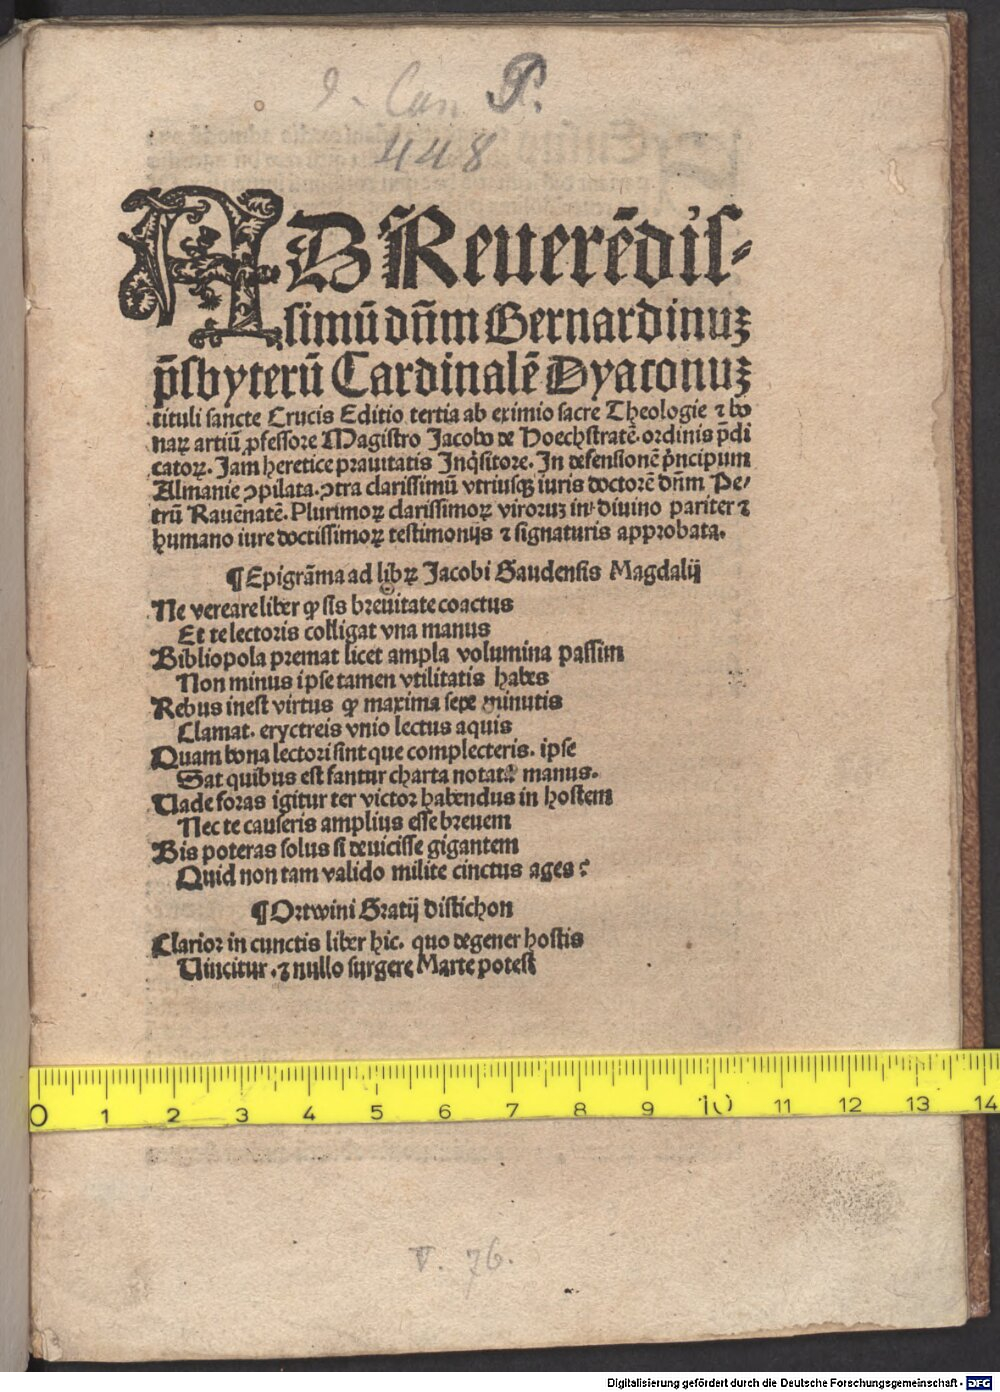 J. Can P.
448
AD Reuerēdis-
simū dn̄m Bernardinuꝫ
p̄sbyterū Cardinalē Dyaconuꝫ
tituli sancte Crucis Editio tertia ab eximio sacre Theologie ⁊ bo
naꝝ artiū ꝓfessore Magistro Jacobo de Hoechstratē. ordinis p̄di
catoꝝ. Jam heretice prauitatis Inq̓sitore. In defensionē p̓ncipum
Almanie ꝯpilata. ꝯtra clarissimū vtriusqꝫ iuris doctorē dn̄m Pe/
trū Rauēnatē. Plurimoꝝ clarissimoꝝ viroruꝫ in diuino pariter ⁊
humano iure doctissimoꝝ testimonijs ⁊ signaturis approbata.
¶ Epigrāma ad libꝝ Jacobi Gaudensis Magdalij
Ne vereare liber ꝙ sis breuitate coactus
Et te lectoris colligat vna manus
Bibliopola premat licet ampla volumina passim
Non minus ipse tamen vtilitatis habes
Rebus inest virtus ꝙ maxima sepe minutis
Clamat. eryctreis vnio lectus aquis
Quam bona lectori sint que complecteris. ipse
Sat quibus est fantur charta notata manus.
Uade foras igitur ter victor habendus in hostem
Nec te causeris amplius esse breuem
Bis poteras solus si deuicisse gigantem
Quid non tam valido milite cinctus ages?
¶ Ortwini Gratij distichon
Clarior in cunctis liber hic. quo degener hostis
Uincitur. ⁊ nullo surgere Marte potest
0 1 2 3 4 5 6 7 8 9 10 11 12 13 14
V. 76.
Digitalisierung gefördert durch die Deutsche Forschungsgemeinschaft - DFG